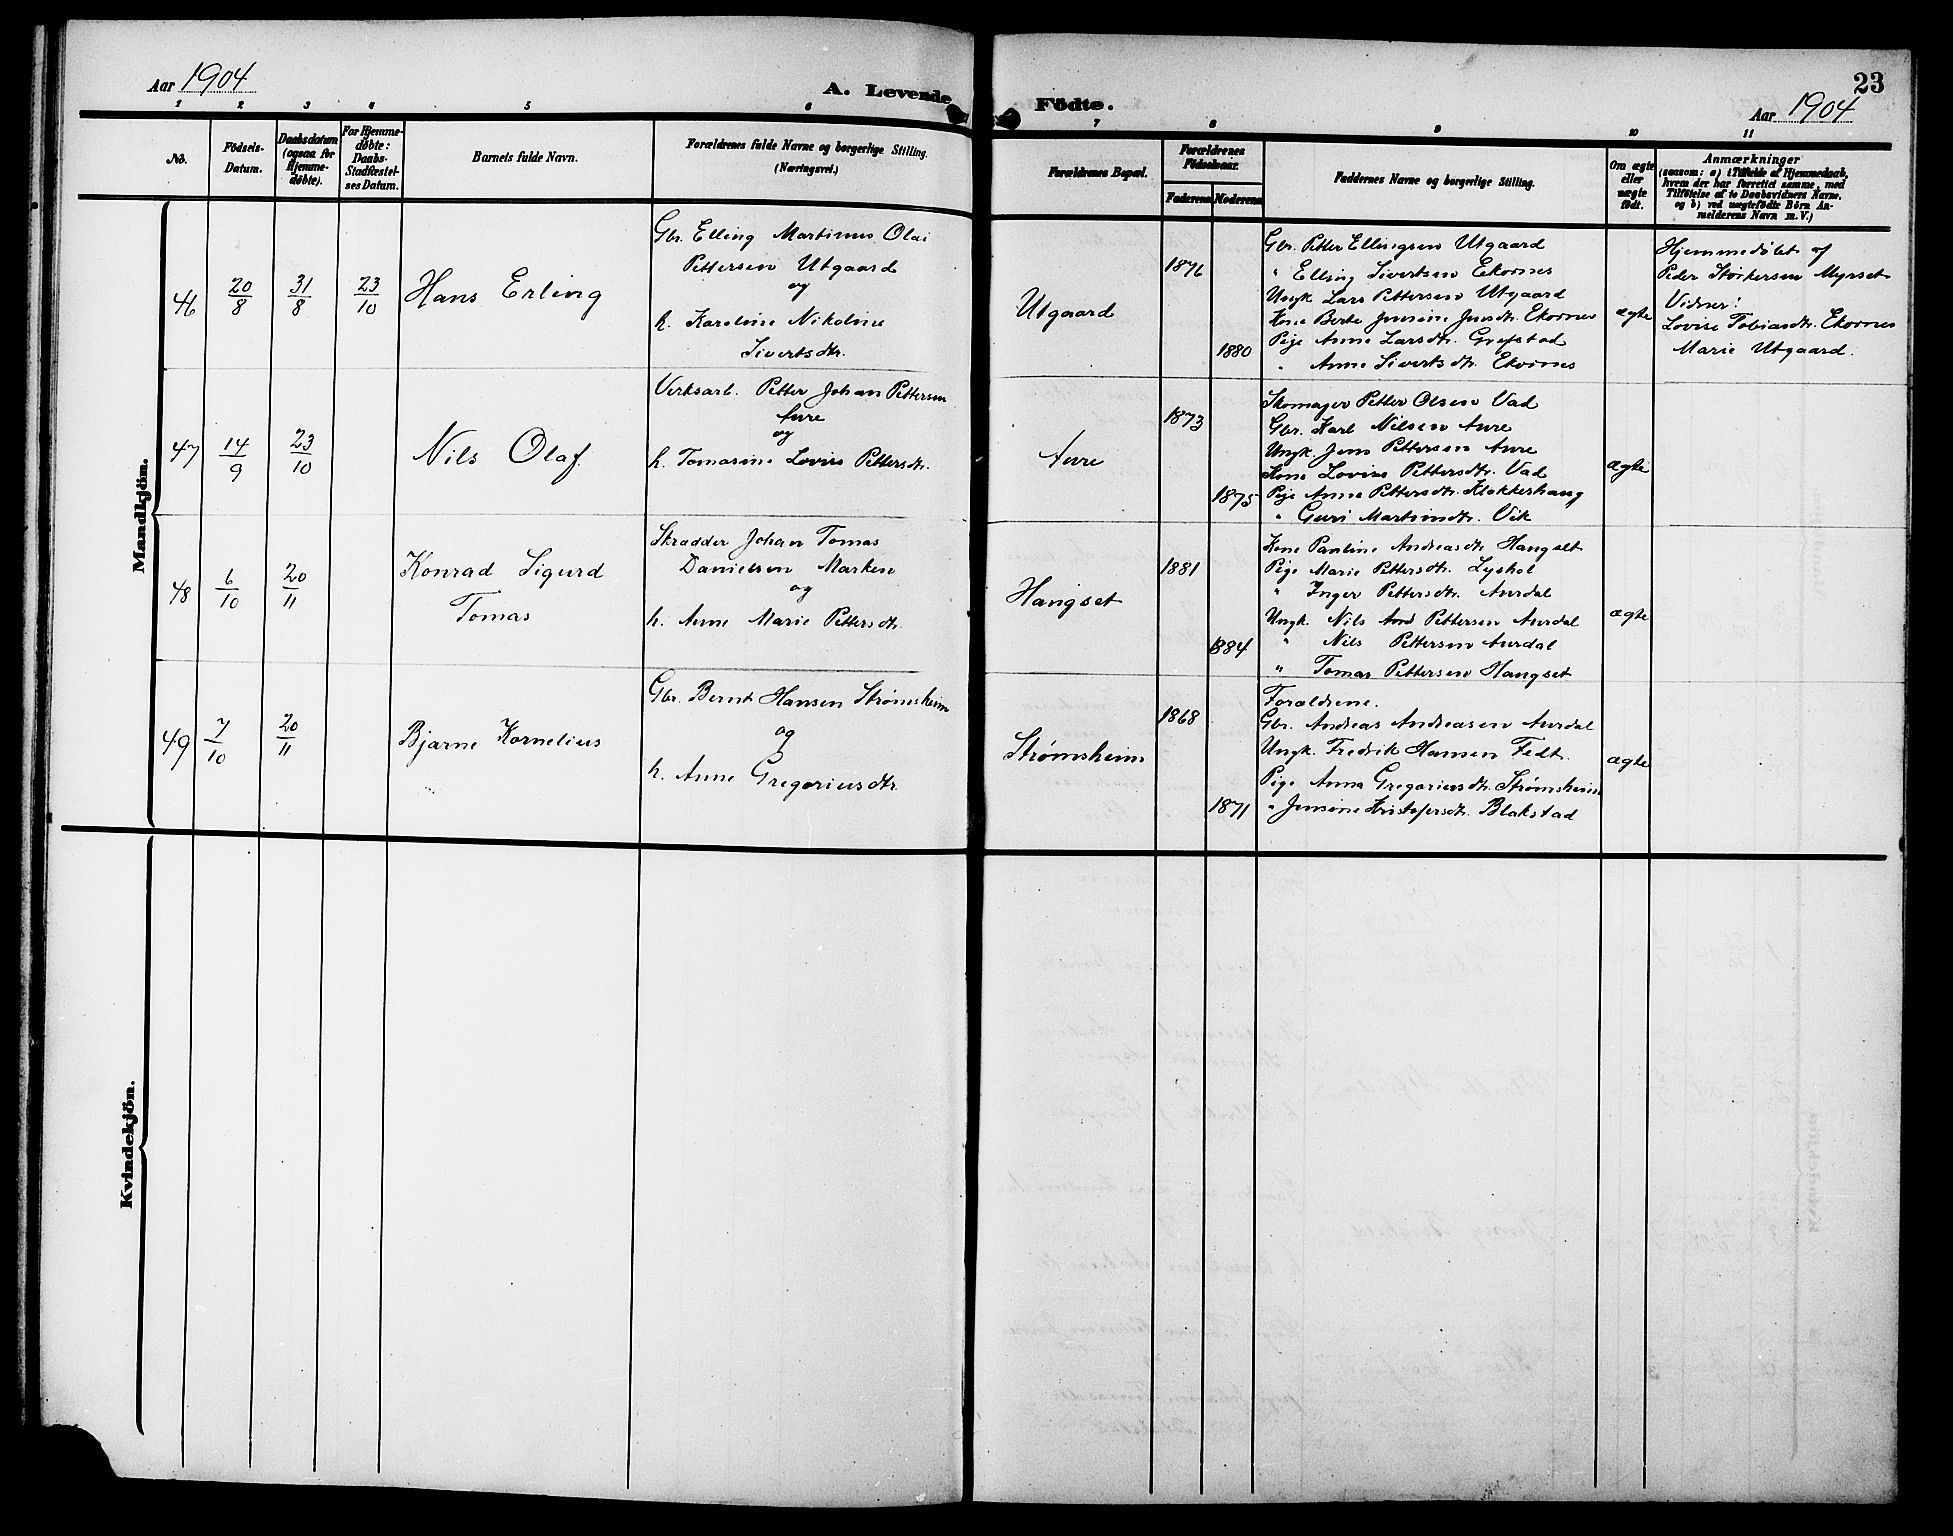 Aar 1904
A. Levende
Födte.
23
Aar 1904
1 2 3 4 5 6
7 8 9 10 11
No.
Födsels-
Datum.
Daabsdatum
(ogsaa for
Hjemme-
döbte).
For Hjemme-
döbte:
Daabs-
Stadfæstel-
ses Datum.
Barnets fulde Navn.
Forældrenes fulde Navne og borgerlige Stilling.
(Næringsvei.)
Forældrenes Bopæl.
Forældrenes
Födselsaar.
Faderens
Moderens
Faddernes Navne og borgerlige Stilling.
Om ægte
eller
uægte
födt.
Anmærkninger
(saasom: a) i Tilfælde af Hjemmedaab,
hvem der har forrettet samme, med
Tilföielse af to Daabsvidners Navne,
og b) ved uægtefödte Börn An-
melderens Navn m. V.)
Mandkjön.
46
20/8
31/8
23/10
Hans Erling
Gbr. Elling Martinus Olai
Pettersen Utgaard
og
h. Karoline Nikoline
Sivertsdtr.
Utgaard
1876
1880
Gbr. Petter Ellingsen Utgaard
" Elling Sivertsen Ekornes
Ungk. Lars Pettersen Utgaard
Kone Berte Jensine Jensdtr. Ekornes
Pige Anne Larsdtr. Grefstad
" Anne Sivertsdtr. Ekornes
ægte
Hjemmedøbt af
Peder Størkersen Myrset
Vidner:
Lovise Tobiasdtr. Ekornes
Marie Utgaard.
47
14/9
23/10
Nils Olaf
Verksarb. Petter Johan Pettersen
Aure
og
h. Tomasine Lovise Pettersdtr.
Aure
1873
1875
Skomager Petter Olsen Vad
Gbr. Karl Nilsen Aure
Ungk. Jens Pettersen Aure
Kone Lovise Pettersdtr. Vad
Pige Anne Pettersdtr. Klokkerhaug
" Guri Martinsdtr. Vik
ægte
48
6/10
20/11
Konrad Sigurd
Tomas
Skrædder Johan Tomas
Danielsen Marken
og
h. Anne Marie Pettersdtr.
Hangset
1881
1884
Kone Pauline Andreasdtr Hangset
Pige Marie Pettersdtr. Lyshol
" Inger Pettersdtr. Aurdal
Ungk. Nils And. Pettersen Aurdal
" Nils Pettersen Aurdal
" Tomas Pettersen Hangset
ægte
49
7/10
20/11
Bjarne Kornelius
Gbr. Bernt Hansen Strømsheim
og
h. Anne Gregoriusdtr
Strømsheim
1868
1871
Forældrene.
Gbr. Andreas Andreasen Aurdal
Ungk. Fredrik Hansen Fedt.
Pige Anna Gregoriusdtr. Strømsheim
" Jensine Kristofersdtr. Blakstad
ægte
Kvindekjön.